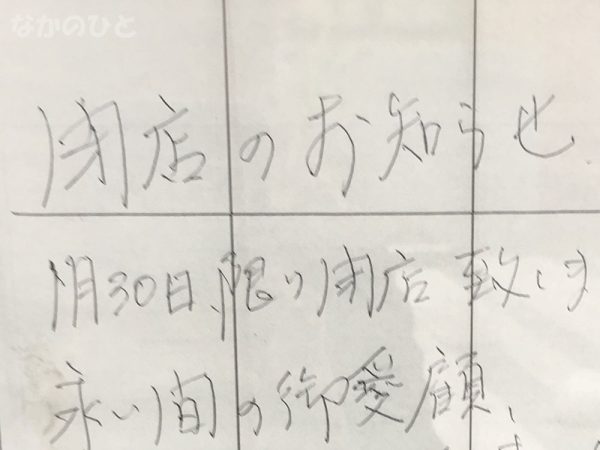 なかのひと
閉店のお知らせ
1月30日限り閉店致しま
永い間の御愛顧、